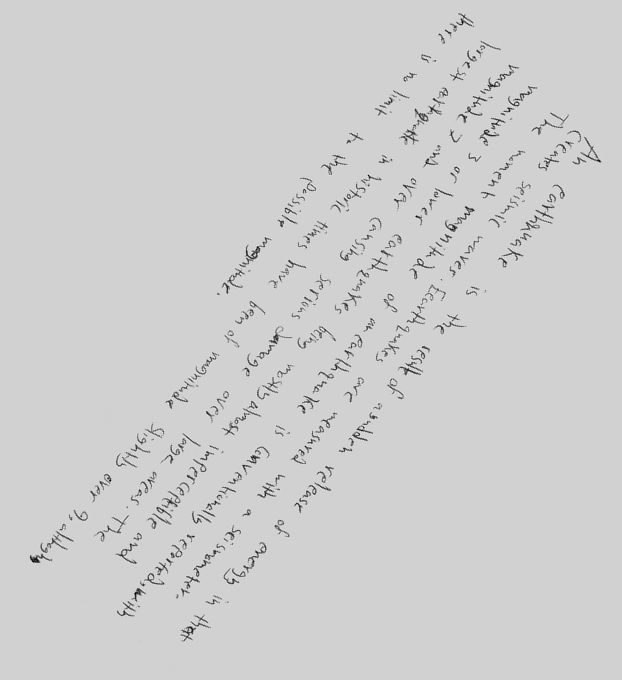 An earthquake is the result of a sudden release of energy in that
creates seismic waves. Earthquakes are measured with a seismometer.
The moment magnitude of an earthquake is conventionally reported, with
magnitude 3 or lower earthquakes being mostly almost imperceptible and
magnitude 7 and over causing serious damage over large areas. The
largest earthquake in historic times have been of magnitude slightly over 9, although
there is no limit to the possible magnitude.